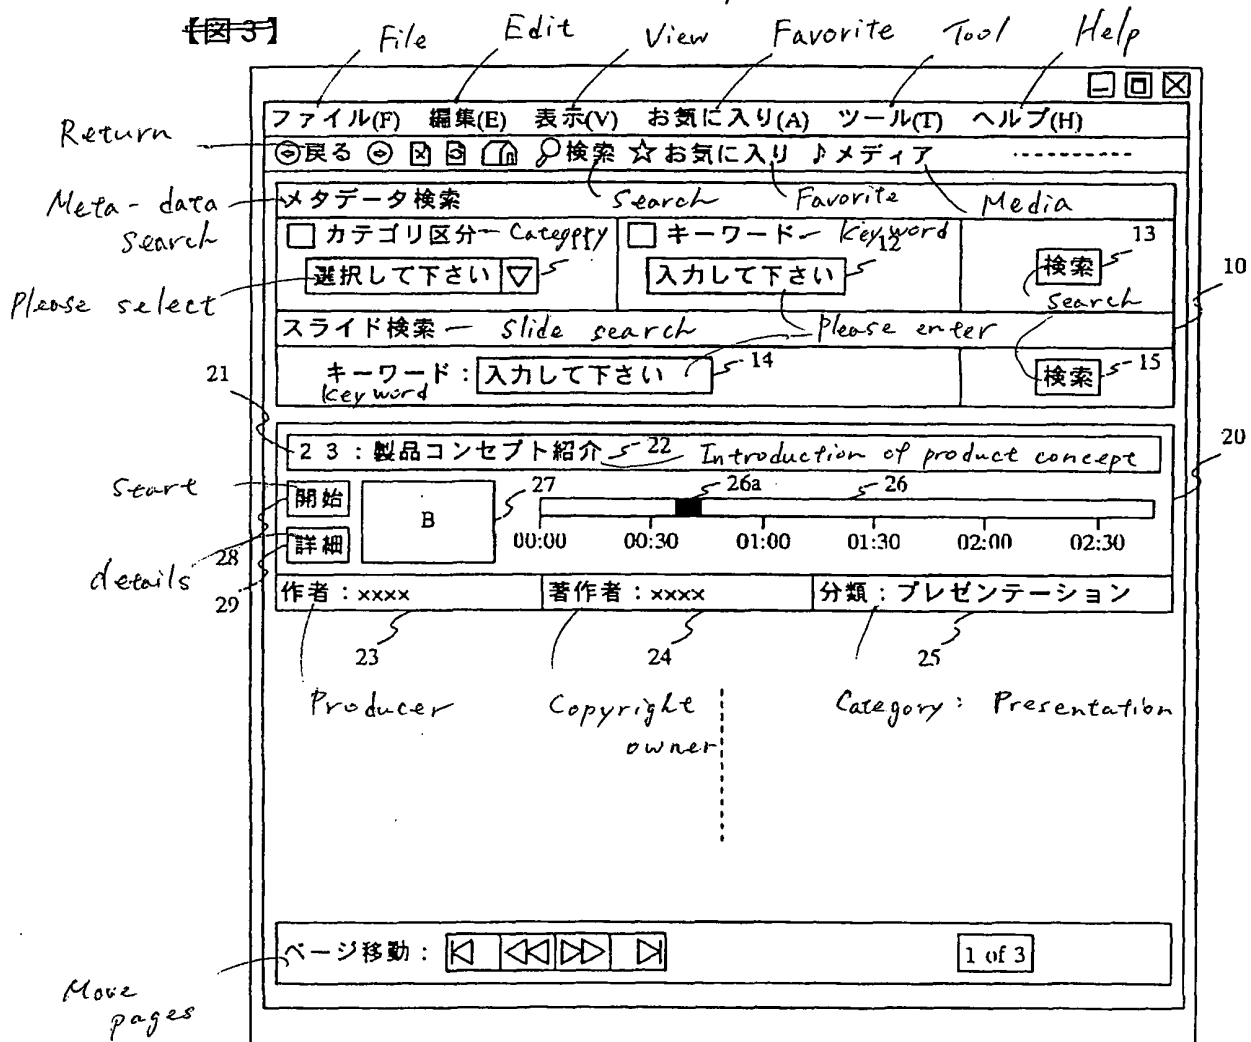 【図3】
File Edit View Favorite Tool Help
ファイル(F) 編集(E) 表示(V) お気に入り(A) ツール(T) ヘルプ(H)
Return
戻る 検索 お気に入り メディア
Meta-data search
メタデータ検索 Search Favorite Media
カテゴリ区分 Category キーワード keyword 12 13
Please select
選択して下さい 入力して下さい 検索 10
search
スライド検索 Slide search Please enter
21 キーワード：入力して下さい 14 検索 15
keyword
20
23：製品コンセプト紹介 22 Introduction of product concept
start
開始 B 27 26a 26
詳細 00:00 00:30 01:00 01:30 02:00 02:30
28
details
29 作者：xxxx 著作者：xxxx 分類：プレゼンテーション
23 24 25
Producer Copyright owner Category: Presentation
ページ移動： 1 of 3
Move pages